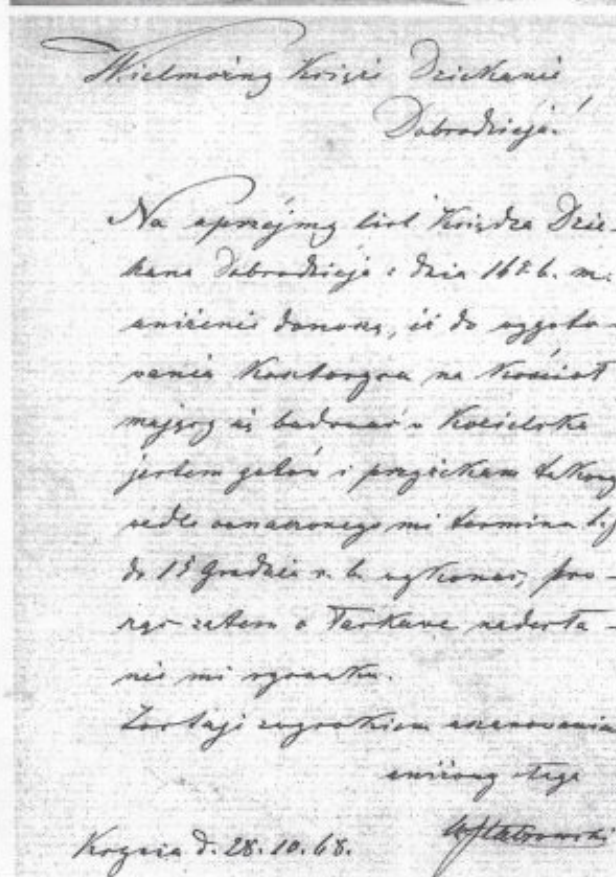 Wielmożny Księże Dziekanie
Dobrodzieju!
Na uprzejmy list Księdza Dzie-
kana Dobrodzieja z dnia 16 t. b. m.
uniżenie donoszę, iż do wygoto-
wania Kosztorysu na Kościół
mający się budować w
jestem gotów i przyrzekam takowy
wedle oznaczonego mi terminu t. j.
do 15 Grudnia r. b. wykonać, pro-
sząc zatem o łaskawe nadesła-
nie mi rysunku.
Zostaję z wysokiem uszanowaniem
uniżony sługa
d. 28. 10. 68.